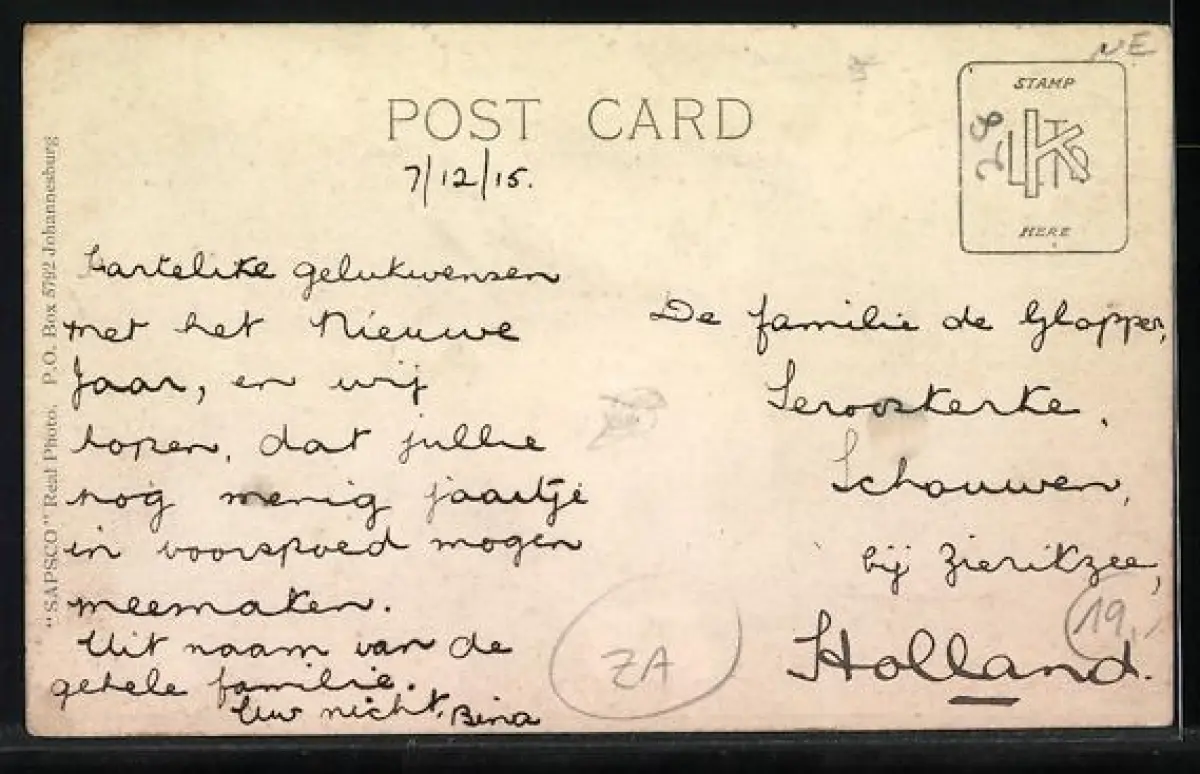 NE
STAMP
HERE
POST CARD
7/12/15.
"SAPSCO" Real Photo, P.O. Box 5792 Johannesburg
Hartelike gelukwensen
met het Nieuwe
Jaar, en wij
hopen, dat jullie
nog menig jaartje
in voorspoed mogen
meemaken.
Uit naam van de
gehele familie.
Uw nicht, Bina
De familie de Glopper,
Serooskerke,
Schouwen,
bij Zierikzee,
Holland.
19,-
ZA